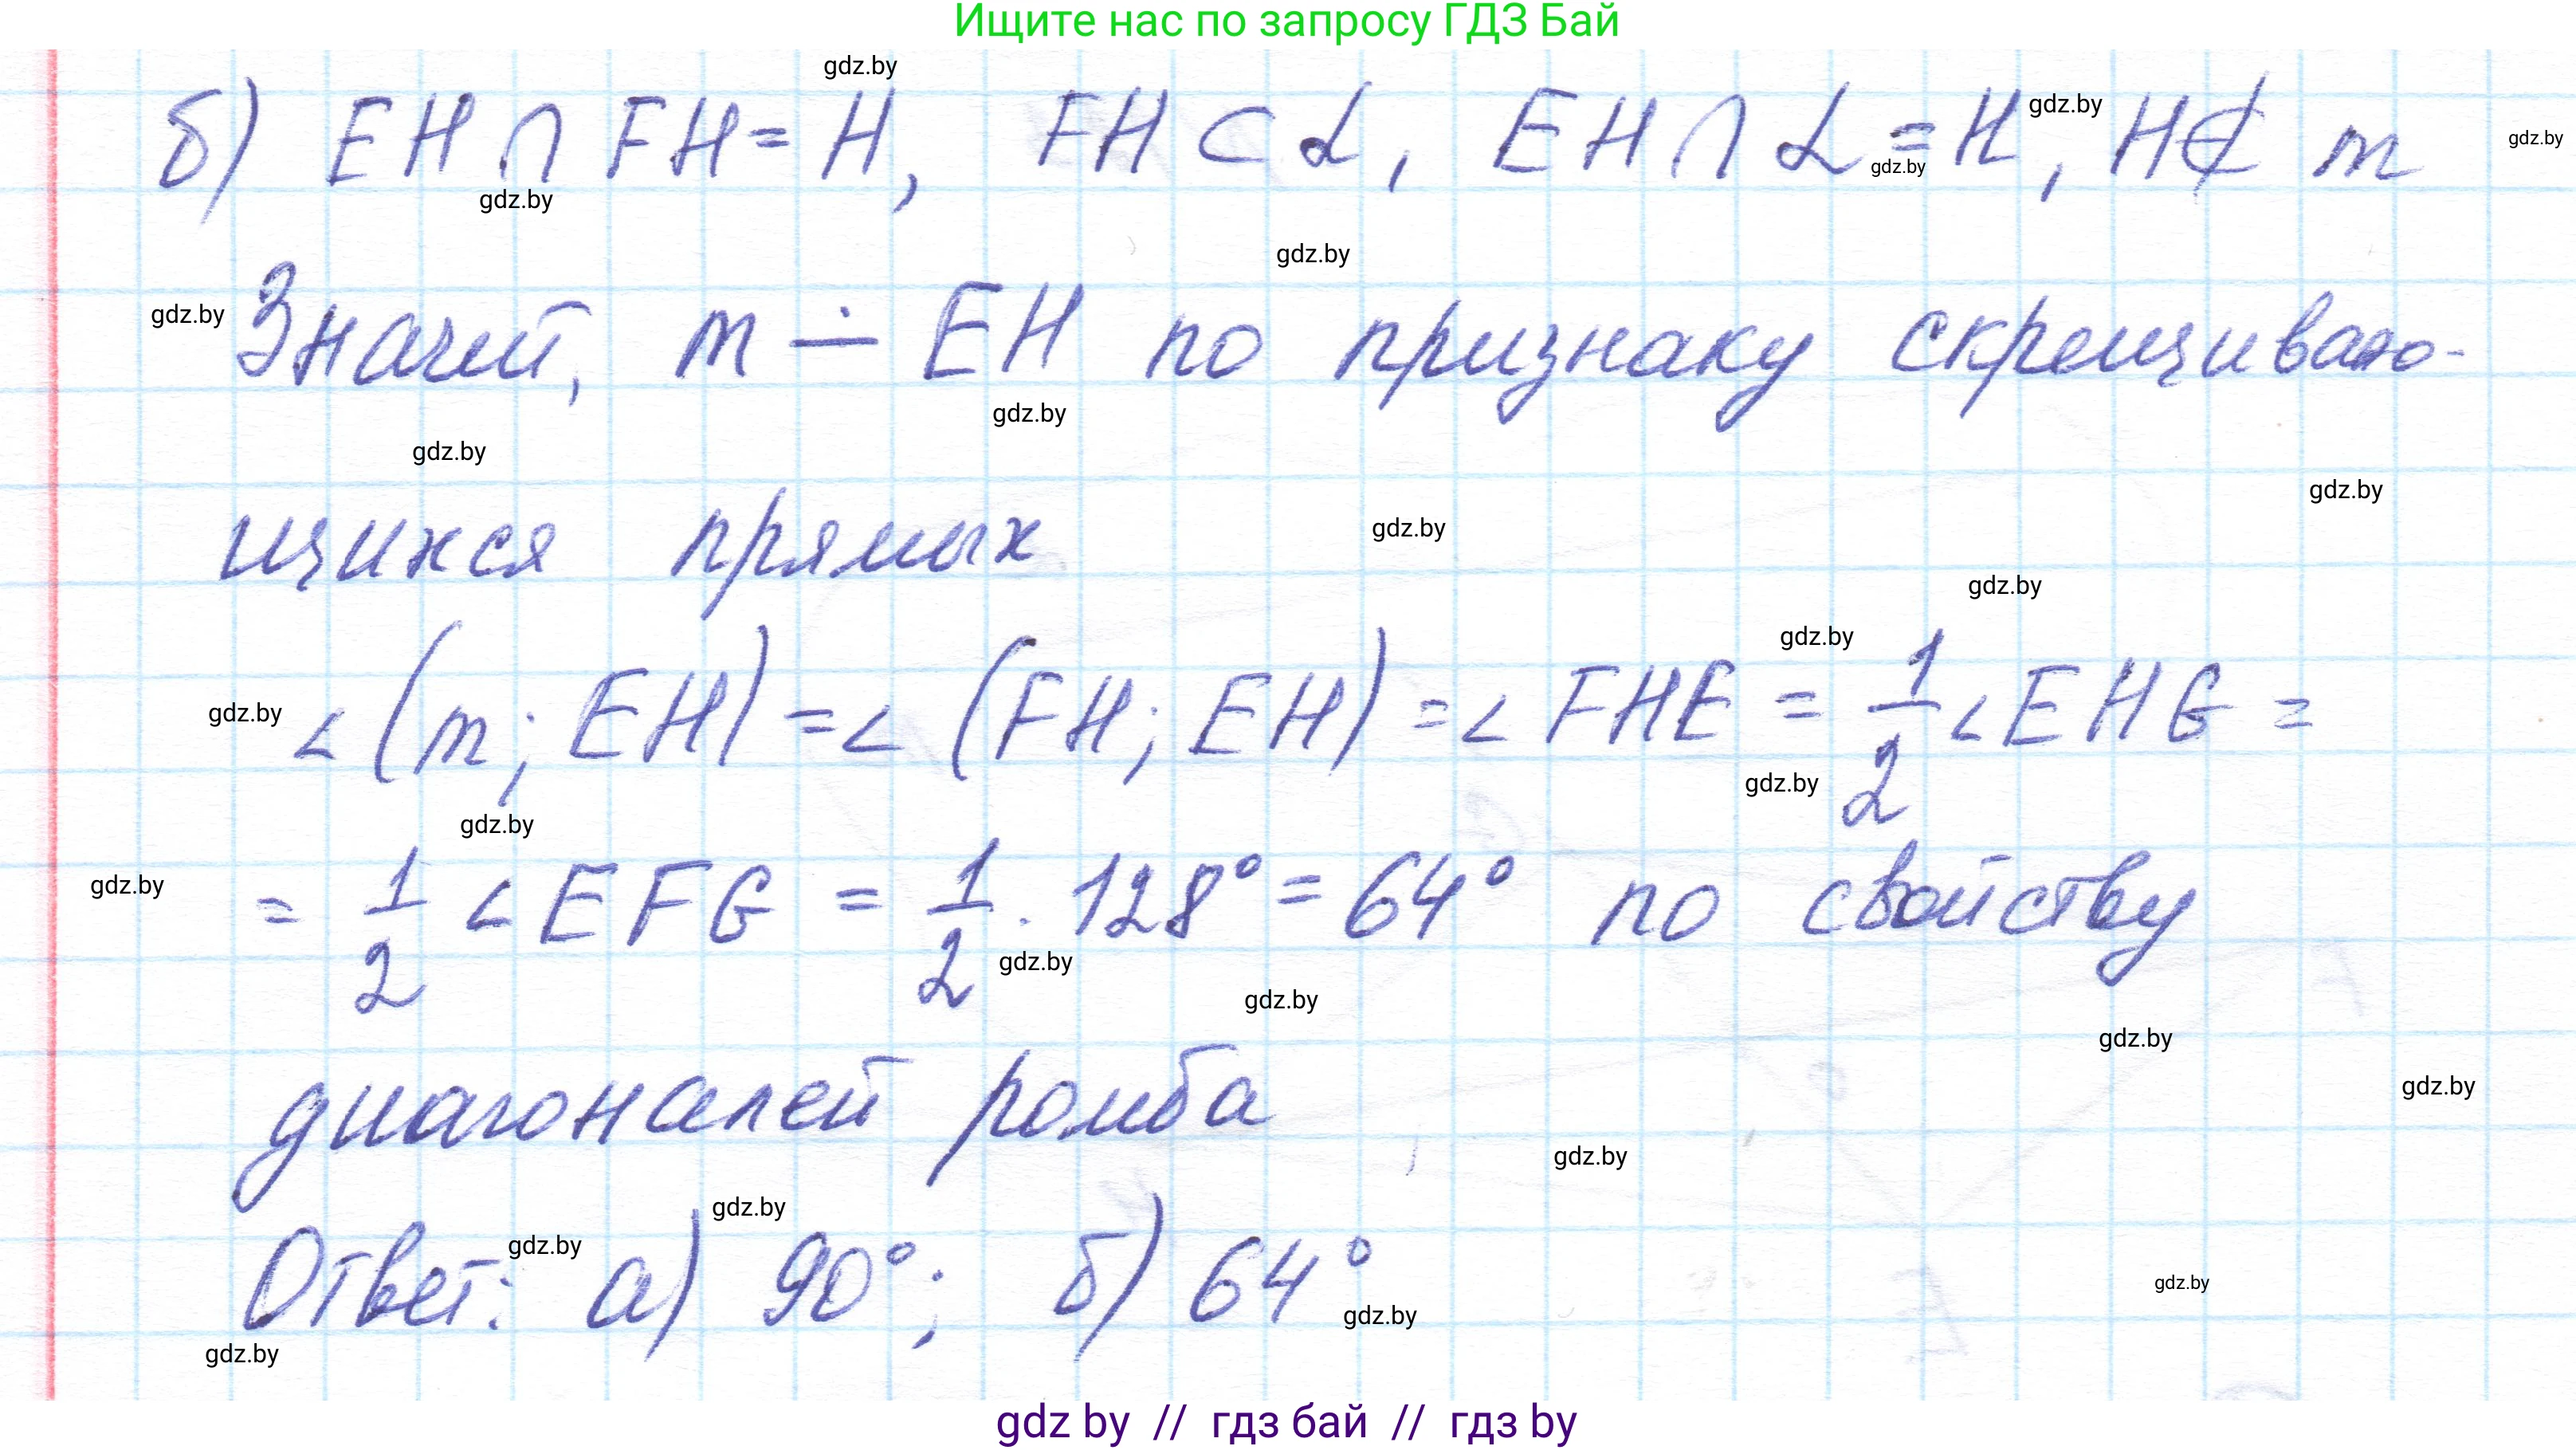 Ищите нас по запросу ГДЗ Бай
gdz.by
б) EH ∩ FH = H, FH ⊂ α, EH ∩ α = H, H ∉ m
gdz.by
gdz.by
gdz.by
gdz.by
gdz.by
gdz.by
Значит, m ∸ EH по признаку скрещиваю-
gdz.by
gdz.by
gdz.by
gdz.by
щихся прямых
gdz.by
gdz.by
gdz.by
∠(m; EH) = ∠(FH; EH) = ∠FHE = 1/2 ∠EHG =
gdz.by
gdz.by
gdz.by
gdz.by
= 1/2 ∠EFG = 1/2 · 128° = 64° по свойству
gdz.by
gdz.by
gdz.by
gdz.by
диагоналей ромба
gdz.by
gdz.by
gdz.by
Ответ: а) 90°; б) 64°
gdz.by
gdz.by
gdz.by
gdz by // гдз бай // гдз by